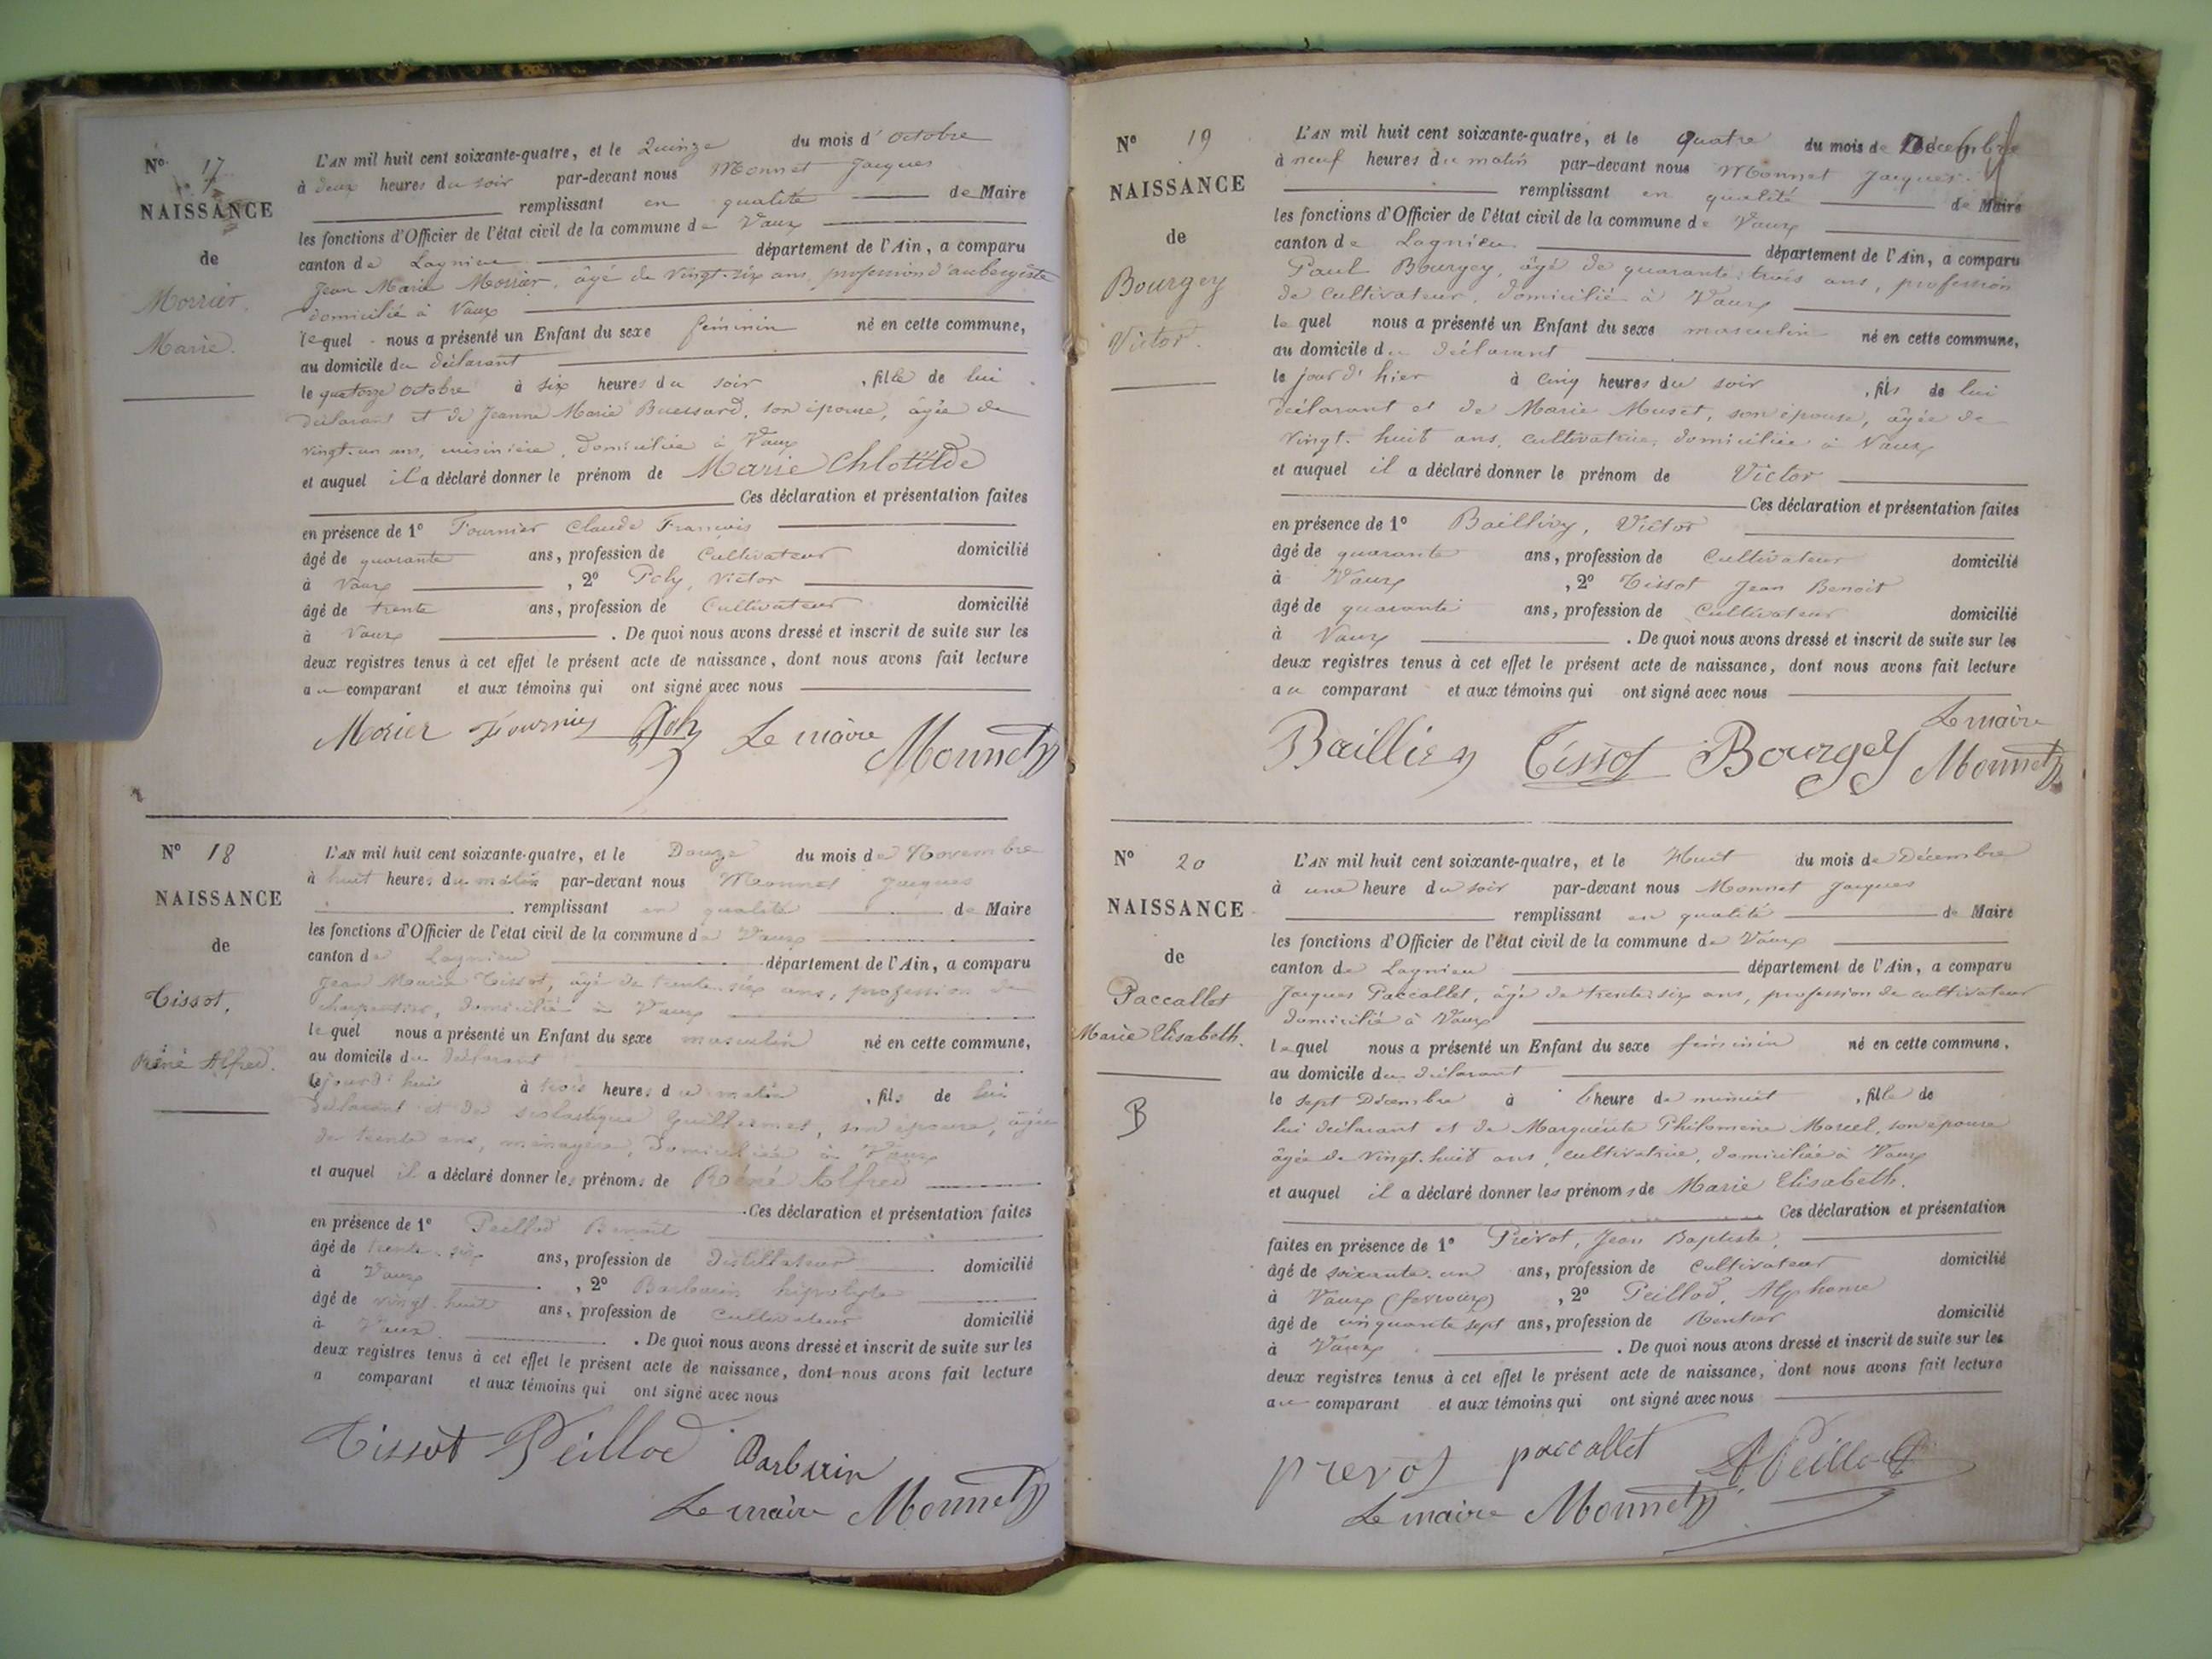 Nº 17
NAISSANCE
de
Morrier
Marie.
L'AN mil huit cent soixante-quatre, et le Quinze du mois d'octobre
à deux heures du soir par-devant nous Monnet Jacques
remplissant en qualité de Maire
les fonctions d'Officier de l'état civil de la commune de Vaux
canton de Lagnieu département de l'Ain, a comparu
Jean Marie Morrier, âgé de vingt-six ans, profession d'aubergiste
domicilié à Vaux
lequel nous a présenté un Enfant du sexe féminin né en cette commune,
au domicile du déclarant
le quatorze octobre à six heures du soir, fille de lui
déclarant et de Jeanne Marie Buessard, son épouse, âgée de
vingt-un ans, cuisinière, domiciliée à Vaux
et auquel il a déclaré donner le prénom de Marie Chlotilde
Ces déclaration et présentation faites
en présence de 1º Fournier Claude François
âgé de quarante ans, profession de Cultivateur domicilié
à Vaux, 2º Poly, Victor
âgé de trente ans, profession de Cultivateur domicilié
à Vaux. De quoi nous avons dressé et inscrit de suite sur les
deux registres tenus à cet effet le présent acte de naissance, dont nous avons fait lecture
au comparant et aux témoins qui ont signé avec nous
Morier Fournier Poly Le maire Monnet
Nº 18
NAISSANCE
de
Tissot,
Réné Alfred.
L'AN mil huit cent soixante-quatre, et le Douze du mois de Novembre
à huit heures du matin par-devant nous Monnet Jacques
remplissant en qualité de Maire
les fonctions d'Officier de l'état civil de la commune de Vaux
canton de Lagnieu département de l'Ain, a comparu
Jean Marie Tissot, âgé de trente-six ans, profession de
charpentier, domicilié à Vaux
lequel nous a présenté un Enfant du sexe masculin né en cette commune,
au domicile du déclarant
le jourd'hui à trois heures du matin, fils de lui
déclarant et de scolastique Guillermet, son épouse, âgée
de trente ans, ménagère, domiciliée à Vaux
et auquel il a déclaré donner les prénoms de Réné Alfred
Ces déclaration et présentation faites
en présence de 1º Peillod Benoît
âgé de trente-six ans, profession de distillateur domicilié
à Vaux, 2º Barbarin hipolyte
âgé de vingt-huit ans, profession de cultivateur domicilié
à Vaux. De quoi nous avons dressé et inscrit de suite sur les
deux registres tenus à cet effet le présent acte de naissance, dont nous avons fait lecture
a comparant et aux témoins qui ont signé avec nous
Tissot Peillod Barbarin
Le maire Monnet
Nº 19
NAISSANCE
de
Bourgey
Victor.
L'AN mil huit cent soixante-quatre, et le quatre du mois de Décembre
à neuf heures du matin par-devant nous Monnet Jacques
remplissant en qualité de Maire
les fonctions d'Officier de l'état civil de la commune de Vaux
canton de Lagnieu département de l'Ain, a comparu
Paul Bourgey, âgé de quarante-trois ans, profession
de cultivateur, domicilié à Vaux
lequel nous a présenté un Enfant du sexe masculin né en cette commune,
au domicile du déclarant
le jour d'hier à cinq heures du soir, fils de lui
déclarant et de Marie Muset, son épouse, âgée de
vingt-huit ans, cultivatrice, domiciliée à Vaux
et auquel il a déclaré donner le prénom de Victor
Ces déclaration et présentation faites
en présence de 1º Baillivy, Victor
âgé de quarante ans, profession de Cultivateur domicilié
à Vaux, 2º Tissot Jean Benoit
âgé de quarante ans, profession de Cultivateur domicilié
à Vaux. De quoi nous avons dressé et inscrit de suite sur les
deux registres tenus à cet effet le présent acte de naissance, dont nous avons fait lecture
au comparant et aux témoins qui ont signé avec nous
Le maire
Tissot Bourgey Monnet
Nº 20
NAISSANCE
de
Paccallet
Marie Elisabeth.
B
L'AN mil huit cent soixante-quatre, et le Huit du mois de Décembre
à une heure du soir par-devant nous Monnet Jacques
remplissant en qualité de Maire
les fonctions d'Officier de l'état civil de la commune de Vaux
canton de Lagnieu département de l'Ain, a comparu
Jacques Paccallet, âgé de trente-six ans, profession de cultivateur
domicilié à Vaux
lequel nous a présenté un Enfant du sexe féminin né en cette commune,
au domicile du déclarant
le sept Décembre à l'heure de minuit, fille de
lui déclarant et de Marguerite Philomène Marcel, son épouse
âgée de vingt-huit ans, cultivatrice, domiciliée à Vaux
et auquel il a déclaré donner les prénoms de Marie Elisabeth.
Ces déclaration et présentation
faites en présence de 1º Prévot, Jean Baptiste,
âgé de soixante-un ans, profession de Cultivateur domicilié
à Vaux (fevroux), 2º Peillod, Alphonse
âgé de cinquante sept ans, profession de Rentier domicilié
à Vaux. De quoi nous avons dressé et inscrit de suite sur les
deux registres tenus à cet effet le présent acte de naissance, dont nous avons fait lecture
au comparant et aux témoins qui ont signé avec nous
prevot paccallet A Peillod
Le maire Monnet